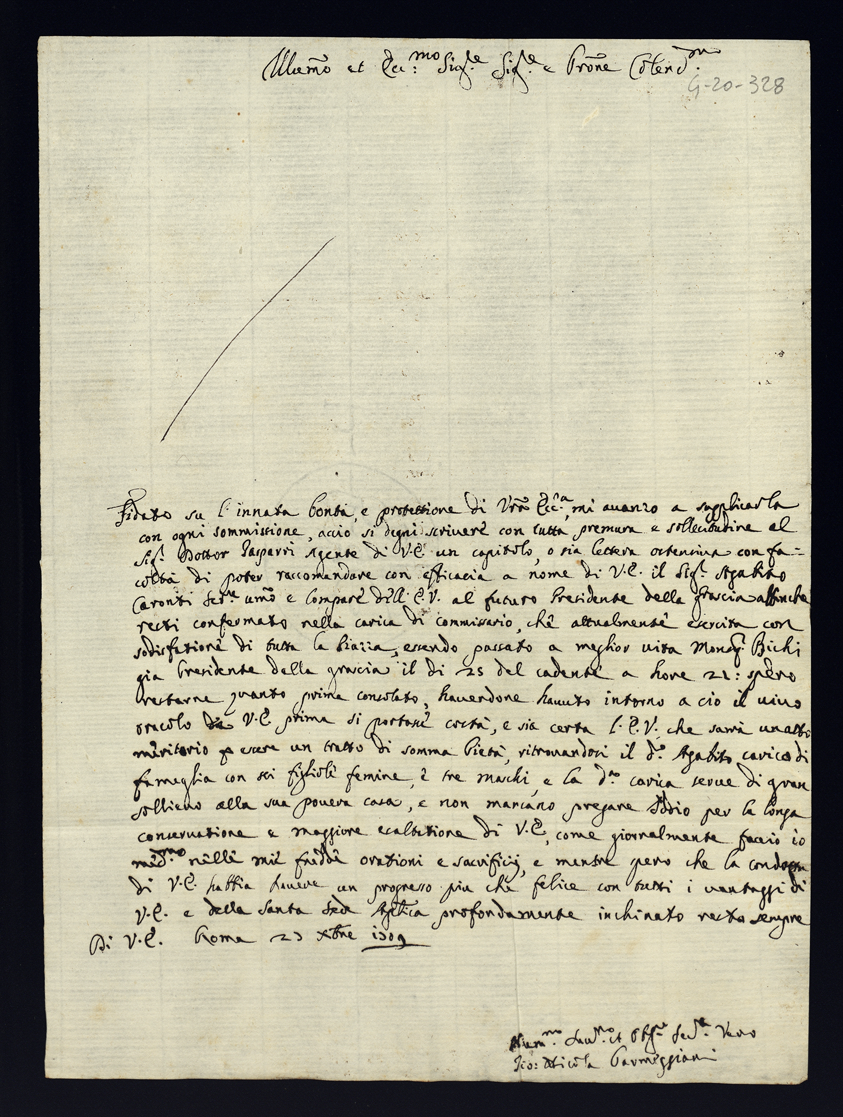 Illmo et Ecc:mo Sigre Sigre e Prone Colendmo
G-20-328
Fidato su l'innata bontà, e protettione di Vra Ecc.a, mi avanzo a supplicarla
con ogni sommissione, acciò si degni scrivere con tutta premura e sollecitudine al
Sigr Dottor Gasparri Agente di V.E. un capitolo, o sia lettera ostensiva con fa=
coltà di poter raccomandare con efficacia a nome di V.E. il Sigr Agabito
Caronti Serre umo e Compare dell'E.V. al futuro Presidente della Grascia affinche
resti confermato nella carica di commissario, che attualmente esercita con
sodisfatione di tutta la Piazza, essendo passato a meglior vita Monsigr Bichi
già Presidente della grascia il di 25 del cadente a hore 21: spero
restarne quanto prima consolato, havendone havuto intorno a cio il vivo
oracolo da V.E. prima si portasse costà, e sia certa l'E.V. che sarà un atto
meritorio p essere un tratto di somma Pietà, ritrovandosi il do Agabito carico di
fameglia con sei figliole femine, e tre maschi, e la da carica serve di gran
sollievo alla sua povera casa, e non mancano pregare Iddio per la longa
conservatione e maggiore esaltatione di V.E., come giornalmente faccio io
medmo nelle mie fredde orationi e sacrificij, e mentre spero che la condotta
di V.E. habbia havere un progresso più che felice con tutti i vantaggi di
V.E. e della Santa Sede Apľica profondamente inchinato resto sempre
Di V.E. Roma 23 Xbre 1709
Humo Devmo et Obgo Serre Vero
Gio: Nicola Parmiggiani